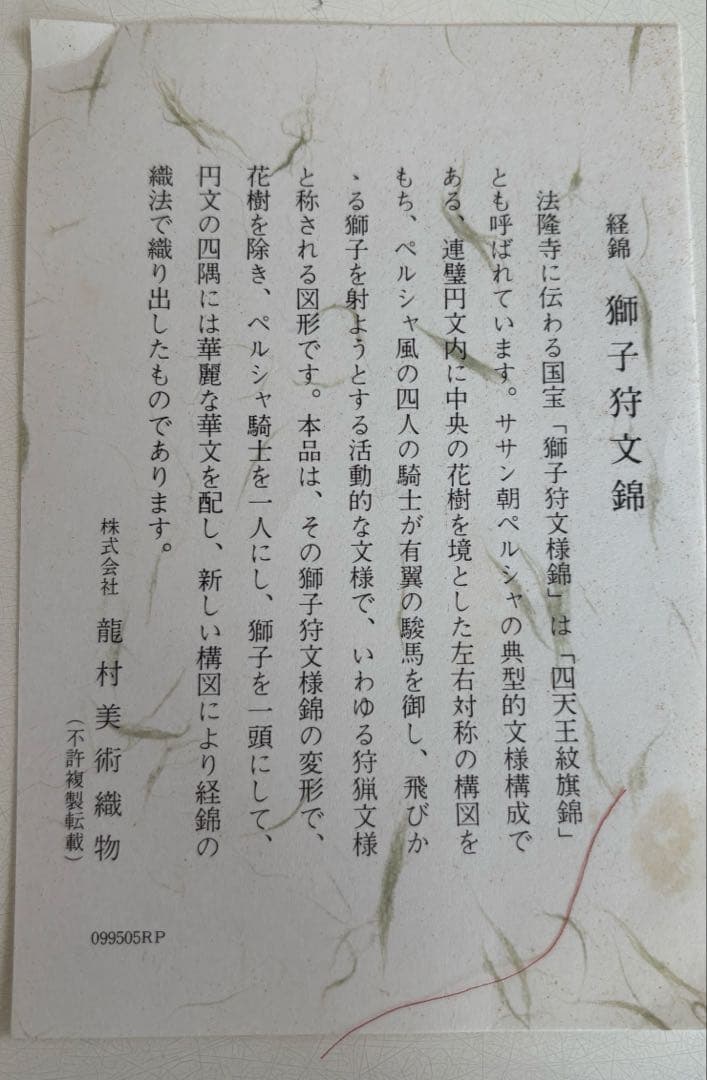 経錦　獅子狩文錦
法隆寺に伝わる国宝「獅子狩文様錦」は「四天王紋旗錦」
とも呼ばれています。ササン朝ペルシャの典型的文様構成で
ある、連璧円文内に中央の花樹を境とした左右対称の構図を
もち、ペルシャ風の四人の騎士が有翼の駿馬を御し、飛びか
ゝる獅子を射ようとする活動的な文様で、いわゆる狩猟文様
と称される図形です。本品は、その獅子狩文様錦の変形で、
花樹を除き、ペルシャ騎士を一人にし、獅子を一頭にして、
円文の四隅には華麗な華文を配し、新しい構図により経錦の
織法で織り出したものであります。
株式会社　龍村美術織物
（不許複製転載）
099505RP